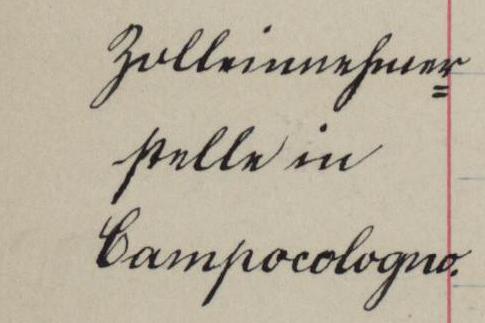 Zolleinnehmer=
stelle in
Campocologno.